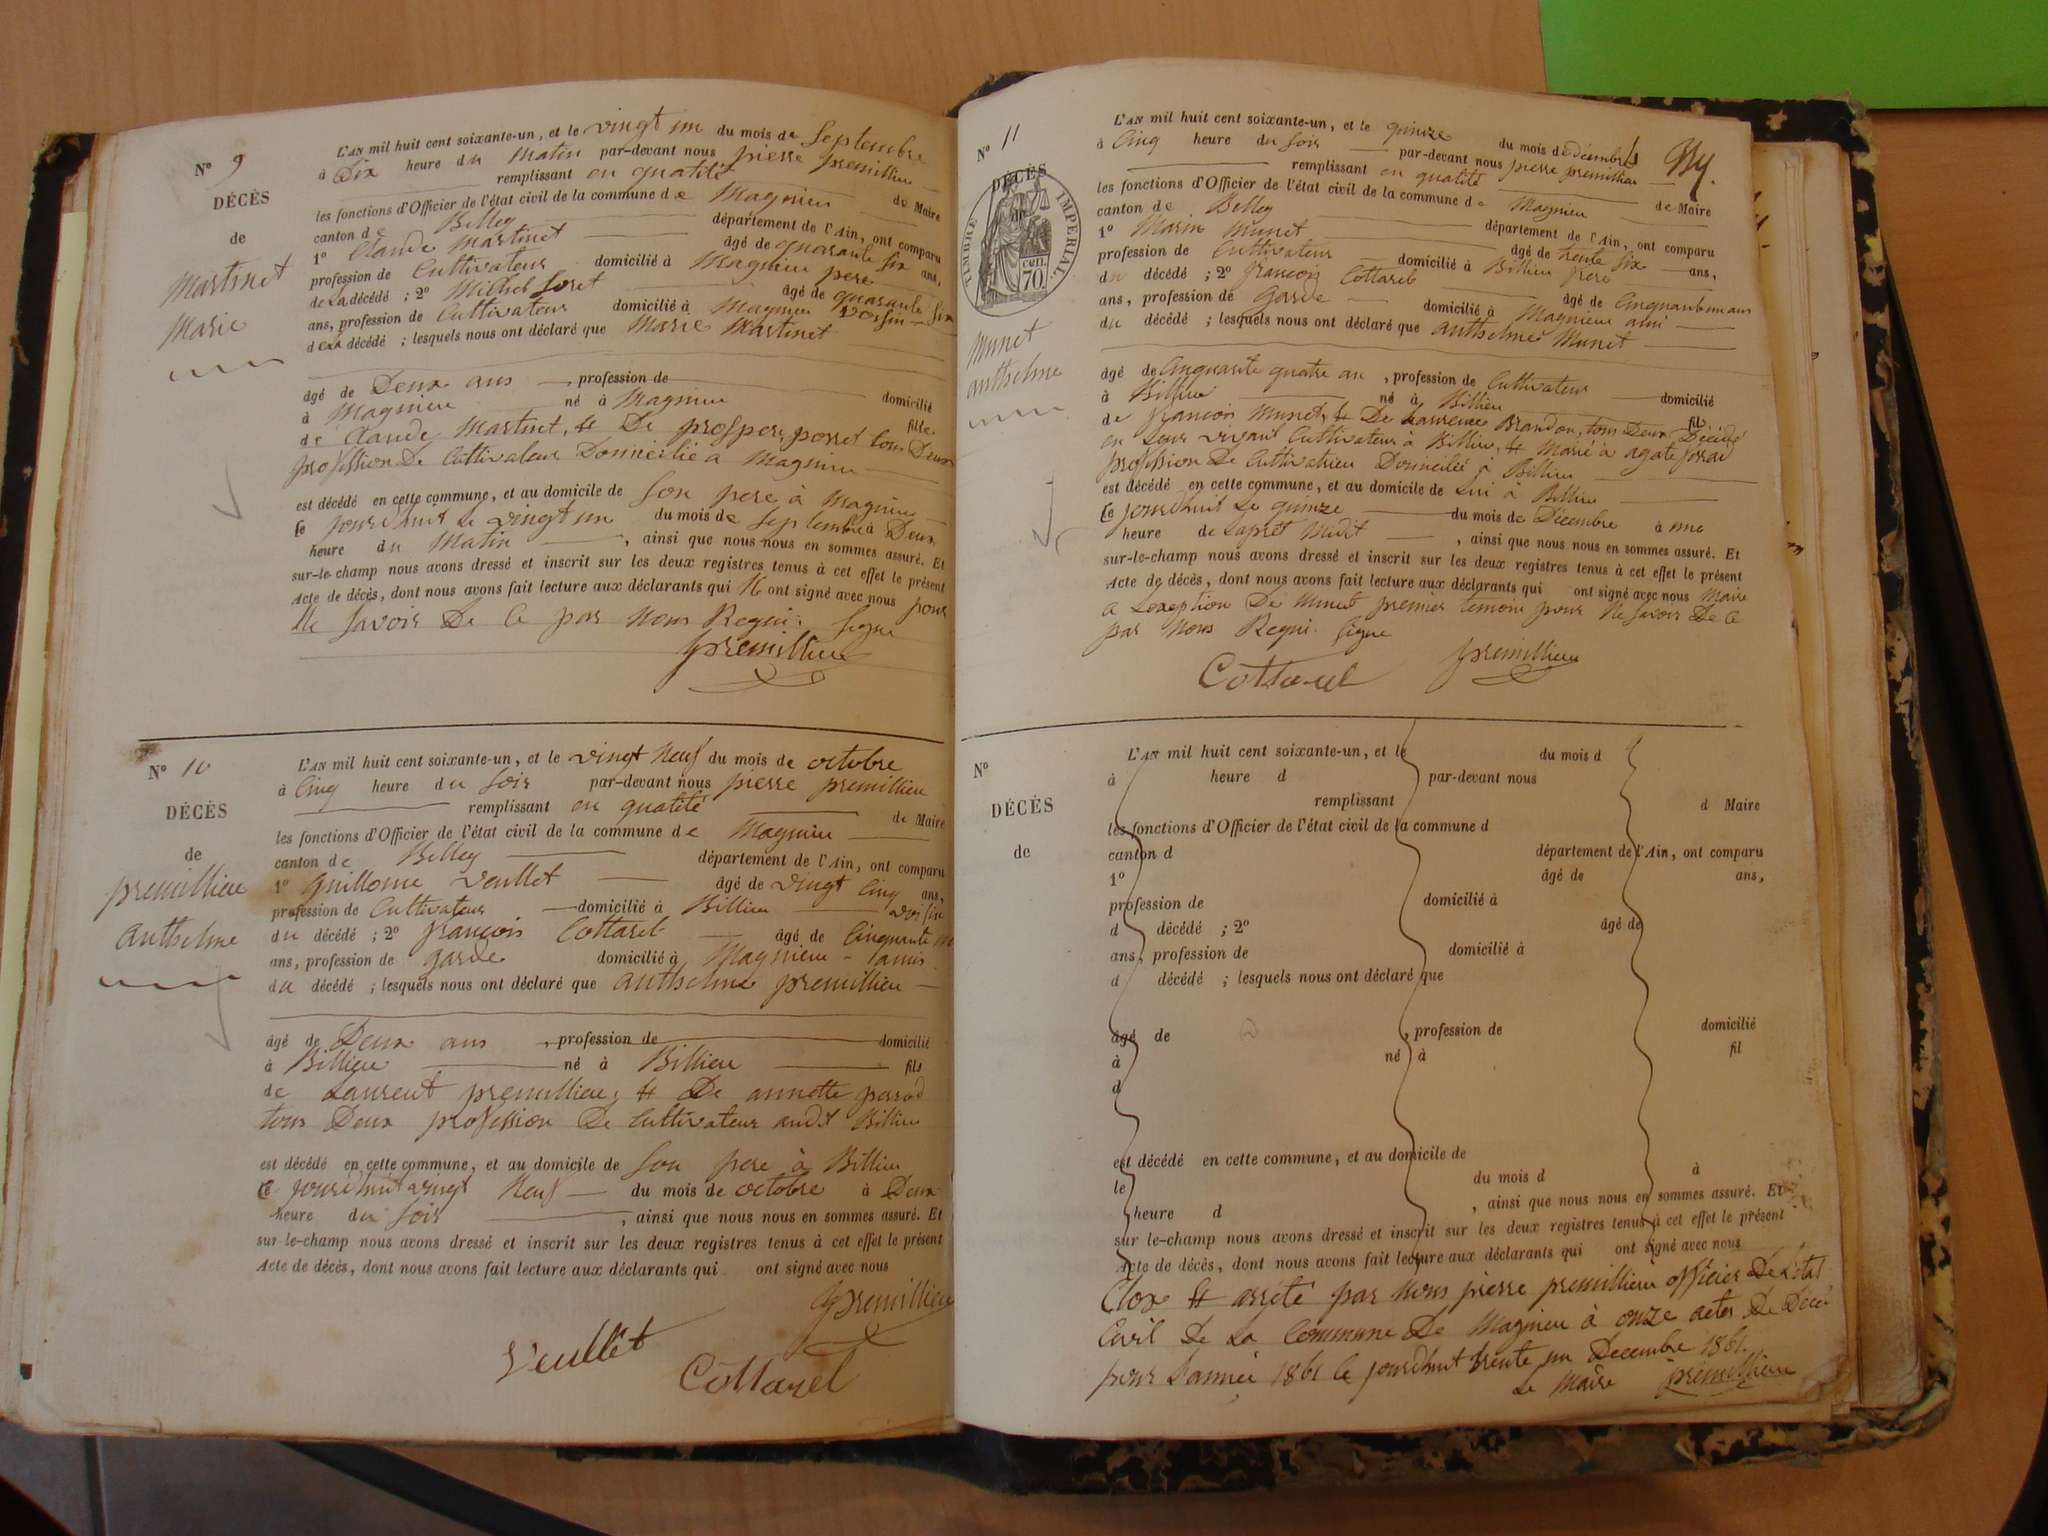 N° 9
DÉCÈS
de
Martinet
Marie
L'AN mil huit cent soixante-un, et le vingt un du mois de Septembre
à Dix heure du Matin par-devant nous pierre premillieu
remplissant en qualité de Maire
les fonctions d'Officier de l'état civil de la commune de Magnieu
canton de Belley département de l'Ain, ont comparu
1° Claude Martinet âgé de quarante six ans,
profession de Cultivateur domicilié à Magnieu pere
de La décédé ; 2° Michel Soret âgé de quarante six
ans, profession de Cultivateur domicilié à Magnieu Voisin
de La décédé ; lesquels nous ont déclaré que Marie Martinet
âgé de Deux ans , profession de domicilié
à Magnieu né à Magnieu fille
de Claude Martinet, et De prospere porret tous Deux
profession De Cultivateur Domicilié a Magnieu
est décédé en cette commune, et au domicile de Son pere à Magnieu
le jourdhuit le vingt un du mois de Septembre à Deux
heure du Matin , ainsi que nous nous en sommes assuré. Et
sur-le-champ nous avons dressé et inscrit sur les deux registres tenus à cet effet le présent
Acte de décès, dont nous avons fait lecture aux déclarants qui N ont signé avec nous pour
Ne Savoir De Ce par Nous Requi. Signe
premillieu
N° 10
DÉCÈS
de
premillieu
Anthelme
L'AN mil huit cent soixante-un, et le vingt Neuf du mois de octobre
à Cinq heure du Soir par-devant nous pierre premillieu
remplissant en qualité de Maire
les fonctions d'Officier de l'état civil de la commune de Magnieu
canton de Belley département de l'Ain, ont comparu
1° Guillome Veullet âgé de vingt Cinq ans,
profession de Cultivateur domicilié à Billieu voisin
du décédé ; 2° francois Cottarel âgé de Cinquante un
ans, profession de garde domicilié à Magnieu amis
du décédé ; lesquels nous ont déclaré que anthelme premillieu
âgé de Deux ans , profession de domicilié
à Billieu né à Billieu fils
de Laurent premillieu, et De annette perrod
tous Deux profession De Cultivateur audit Billieu
est décédé en cette commune, et au domicile de Son pere à Billieu
le jourdhuit vingt Neuf du mois de octobre à Deux
heure du Soir , ainsi que nous nous en sommes assuré. Et
sur-le-champ nous avons dressé et inscrit sur les deux registres tenus à cet effet le présent
Acte de décès, dont nous avons fait lecture aux déclarants qui ont signé avec nous
premillieu
Veullet
Cottarel
N° 11
DÉCÈS
de
TIMBRE IMPÉRIAL
70 cen.
Munet
anthelme
L'AN mil huit cent soixante-un, et le quinze du mois de décembre
à Cinq heure du Soir par-devant nous pierre premillieu
remplissant en qualité de Maire
les fonctions d'Officier de l'état civil de la commune de Magnieu
canton de Belley département de l'Ain, ont comparu
1° Marin Munet âgé de trente six ans,
profession de Cultivateur domicilié à Billieu pere
du décédé ; 2° francois Cottarel âgé de Cinquante un ans
ans, profession de Garde domicilié à Magnieu ami
du décédé ; lesquels nous ont déclaré que anthelme Munet
âgé de Cinquante quatre an , profession de Cultivateur domicilié
à Billieu né à Billieu fils
de francois Munet, et De Laurence Brandon, tous Deux Décédé
en Leur vivant Cultivateur à Billieu, et Marié a agate
profession De Cultivatrieu Domicilié à Billieu
est décédé en cette commune, et au domicile de Lui à Billieu
le jourdhuit Le quinze du mois de Décembre à une
heure de Laprét Midit , ainsi que nous nous en sommes assuré. Et
sur-le-champ nous avons dressé et inscrit sur les deux registres tenus à cet effet le présent
Acte de décès, dont nous avons fait lecture aux déclarants qui ont signé avec nous Maire
a Lexeption De Munet premier temoin pour Ne Savoir De Ce
par Nous Requi. Signe
Cottarel premillieu
N°
DÉCÈS
de
L'AN mil huit cent soixante-un, et le du mois d
à heure d par-devant nous
remplissant d Maire
les fonctions d'Officier de l'état civil de la commune d
canton d département de l'Ain, ont comparu
1° âgé de ans,
profession de domicilié à
d décédé ; 2° âgé de
ans, profession de domicilié à
d décédé ; lesquels nous ont déclaré que
âgé de , profession de domicilié
à né à fil
d
est décédé en cette commune, et au domicile de
le du mois d à
heure d , ainsi que nous nous en sommes assuré. Et
sur le-champ nous avons dressé et inscrit sur les deux registres tenus à cet effet le présent
Acte de décès, dont nous avons fait lecture aux déclarants qui ont signé avec nous
Clox et arrété par Nous pierre premillieu officier De Létat
Civil De La Commune De Magnieu à onze actes De Décé
pour Lanneé 1861 le jourdhuit trente un Decembre 1861.
Le Maire premillieu